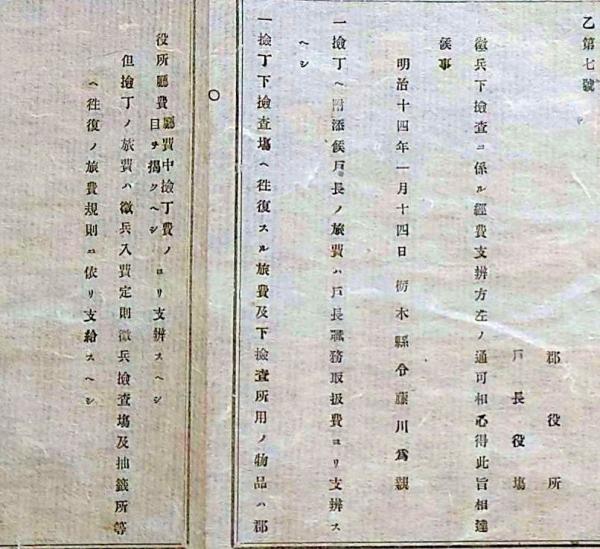 乙第七號
郡役所
戸長役塲
徴兵下撿査ニ係ル經費支辨方左ノ通可相心得此旨相達
候事
明治十四年一月十四日 栃木縣令藤川爲親
一撿丁ヘ附添候戸長ノ旅費ハ戸長職務取扱費ヨリ支辨ス
ヘシ
一撿丁下撿査塲ヘ徃復スル旅費及下撿査所用ノ物品ハ郡
役所廳費廳費中撿丁費ノ目ヲ揭クヘシヨリ支辨スヘシ
但撿丁ノ旅費ハ徴兵入費定則徴兵撿査塲及抽籤所等
ヘ徃復ノ旅費規則ニ依リ支給スヘシ
○